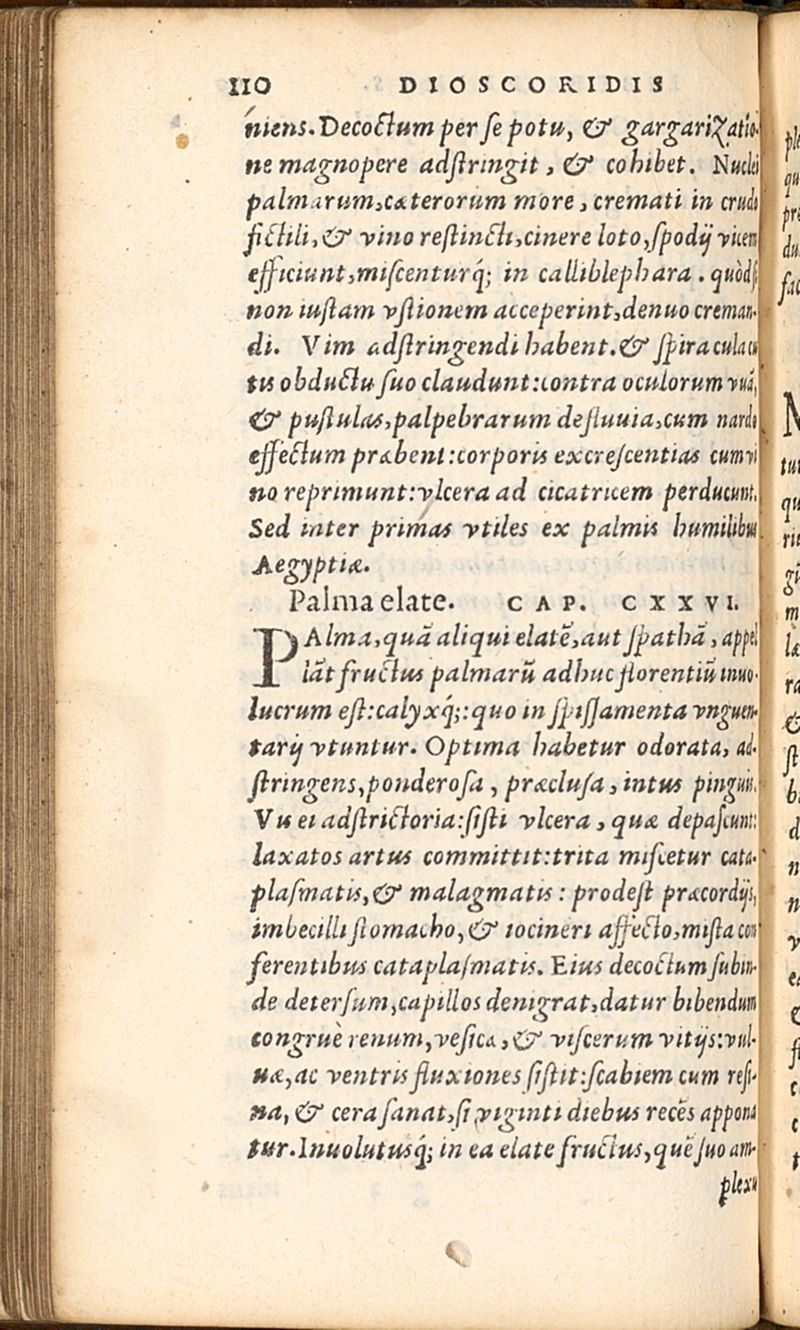 110 DIOSCORIDIS
niens. Decoctum per se potu, & gargarizatio-
ne magnopere adstringit, & cohibet. Nuclei
palmarum, cæterorum more, cremati in crudo
fictili, & vino restincti, cinere loto, spodij vicem
efficiunt, miscenturq́; in calliblephara. quòd si
non iustam vstionem acceperint, denuo creman-
di. Vim adstringendi habent. & spiracula cu
tis obductu suo claudunt: contra oculorum vuã,
& pustulas, palpebrarum defluuia, cum nardo
effectum præbent: corporis excrescentias cum vi
no reprimunt: vlcera ad cicatricem perducunt.
Sed inter primas vtiles ex palmis humilibus
Aegyptiæ.
Palma elate. CAP. CXXVI.
PAlma, quã aliqui elatẽ, aut spathã, appel
lãt fructus palmarũ adhuc florentiũ inuo-
lucrum est: calyxq́;: quo in spissamenta vnguen-
tarij vtuntur. Optima habetur odorata, ad-
stringens, ponderosa, præclusa, intus pinguis.
Vis ei adstrictoria: sisti vlcera, quæ depascunt:
laxatos artus committit: trita miscetur cata-
plasmatis, & malagmatis: prodest præcordijs,
imbecilli stomacho, & iocineri affecto, mista con
ferentibus cataplasmatis. Eius decoctum subin-
de detersum, capillos denigrat, datur bibendum
congruè renum, vesicæ, & viscerum vitijs: vul-
uæ, ac ventris fluxiones sistit: scabiem cum resi-
na, & cera sanat, si viginti diebus recẽs appona
tur. Inuolutusq́; in ea elate fructus, quẽ suo am-
plexu